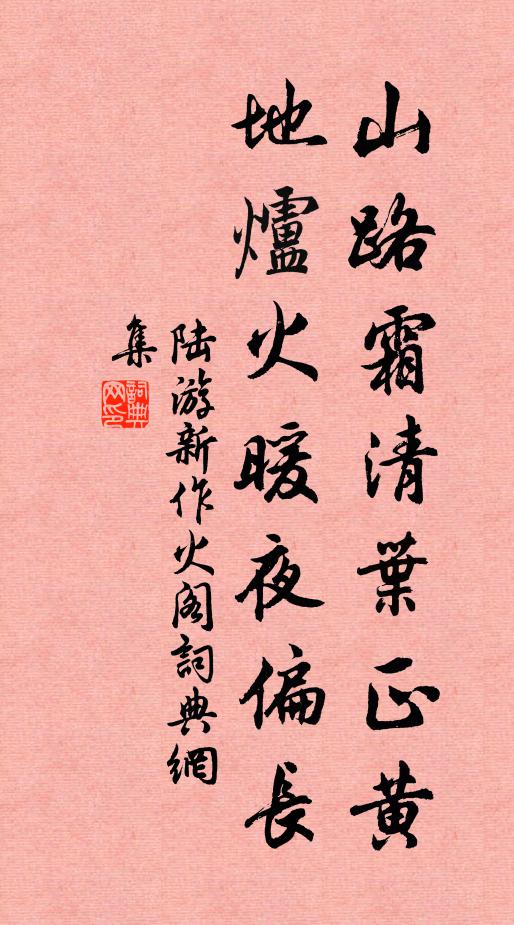 山路霜清葉正黃
地爐火暖夜偏長
陸游新作火閣詞典網
集
詞典網印